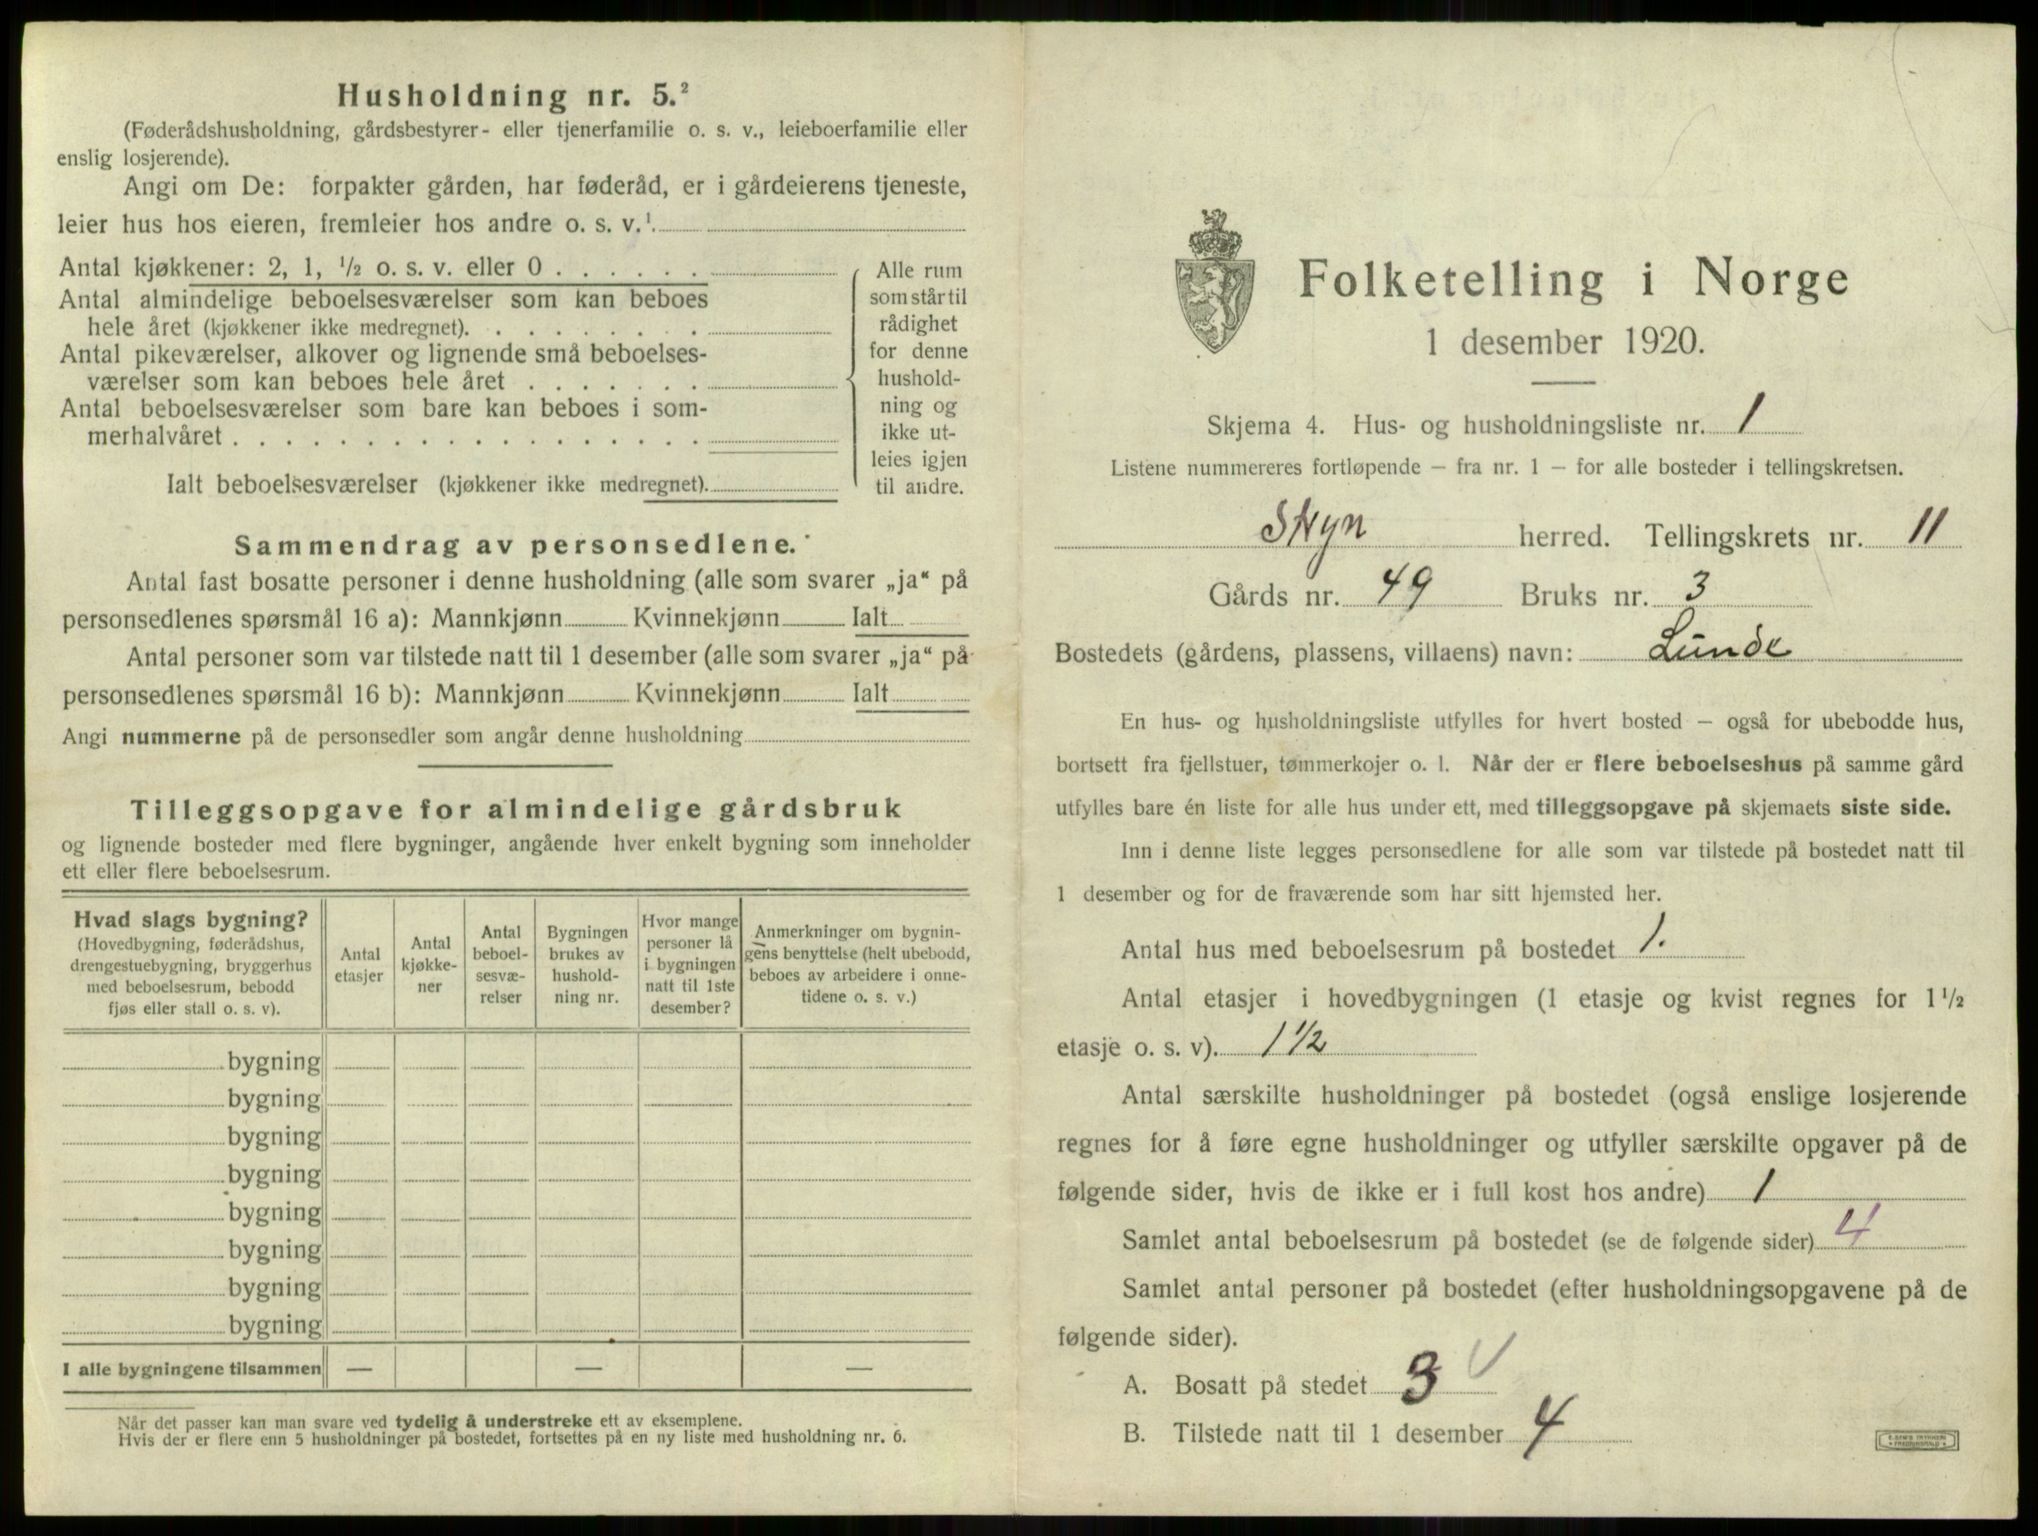 Husholdning nr. 5.²
(Føderådshusholdning, gårdsbestyrer- eller tjenerfamilie o. s. v., leieboerfamilie eller
enslig losjerende).
Angi om De: forpakter gården, har føderåd, er i gårdeierens tjeneste,
leier hus hos eieren, fremleier hos andre o. s. v.¹
Antal kjøkkener: 2, 1, ½ o. s. v. eller 0 . . . . . .
Antal almindelige beboelsesværelser som kan beboes
hele året (kjøkkener ikke medregnet). . . . . . . . .
Antal pikeværelser, alkover og lignende små beboelses-
værelser som kan beboes hele året . . . . . . .
Antal beboelsesværelser som bare kan beboes i som-
merhalvåret . . . . . . . . . . . . . . . . . .
Ialt beboelsesværelser (kjøkkener ikke medregnet).
Alle rum
som står til
rådighet
for denne
hushold-
ning og
ikke ut-
leies igjen
til andre.
Sammendrag av personsedlene.
Antal fast bosatte personer i denne husholdning (alle som svarer „ja“ på
personsedlenes spørsmål 16 a): Mannkjønn Kvinnekjønn Ialt
Antal personer som var tilstede natt til 1 desember (alle som svarer „ja“ på
personsedlenes spørsmål 16 b): Mannkjønn Kvinnekjønn Ialt
Angi nummerne på de personsedler som angår denne husholdning
Tilleggsopgave for almindelige gårdsbruk
og lignende bosteder med flere bygninger, angående hver enkelt bygning som inneholder
ett eller flere beboelsesrum.
Hvad slags bygning?
(Hovedbygning, føderådshus,
drengestuebygning, bryggerhus
med beboelsesrum, bebodd
fjøs eller stall o. s. v).
Antal
etasjer
Antal
kjøkke-
ner
Antal
beboel-
sesvæ-
relser
Bygningen
brukes av
hushold-
ning nr.
Hvor mange
personer lå
i bygningen
natt til 1ste
desember?
Anmerkninger om bygnin-
gens benyttelse (helt ubebodd,
beboes av arbeidere i onne-
tidene o. s. v.)
bygning
bygning
bygning
bygning
bygning
bygning
bygning
bygning
I alle bygningene tilsammen — — —
Når det passer kan man svare ved tydelig å understreke ett av eksemplene.
Hvis der er flere enn 5 husholdninger på bostedet, fortsettes på en ny liste med husholdning nr. 6.
Folketelling i Norge
1 desember 1920.
Skjema 4. Hus- og husholdningsliste nr. 1
Listene nummereres fortløpende – fra nr. 1 – for alle bosteder i tellingskretsen.
Stryn herred. Tellingskrets nr. 11
Gårds nr. 49 Bruks nr. 3
Bostedets (gårdens, plassens, villaens) navn: Lunde
En hus- og husholdningsliste utfylles for hvert bosted – også for ubebodde hus,
bortsett fra fjellstuer, tømmerkojer o. l. Når der er flere beboelseshus på samme gård
utfylles bare én liste for alle hus under ett, med tilleggsopgave på skjemaets siste side.
Inn i denne liste legges personsedlene for alle som var tilstede på bostedet natt til
1 desember og for de fraværende som har sitt hjemsted her.
Antal hus med beboelsesrum på bostedet 1.
Antal etasjer i hovedbygningen (1 etasje og kvist regnes for 1½
etasje o. s. v). 1½
Antal særskilte husholdninger på bostedet (også enslige losjerende
regnes for å føre egne husholdninger og utfyller særskilte opgaver på de
følgende sider, hvis de ikke er i full kost hos andre) 1
Samlet antal beboelsesrum på bostedet (se de følgende sider) 4
Samlet antal personer på bostedet (efter husholdningsopgavene på de
følgende sider).
A. Bosatt på stedet 3
B. Tilstede natt til 1 desember 4